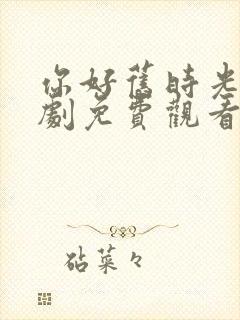 你好舊時光
劇免費觀看
砧菜々